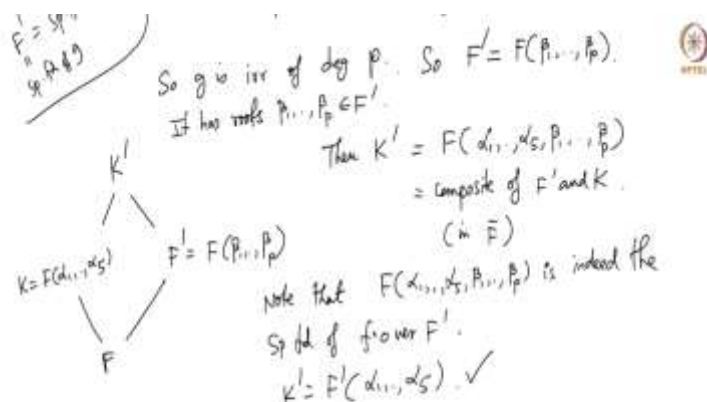 F' = sp
"
sp fd of g
So g is irr of deg p. So F' = F(β₁,..,βₚ).
It has roots β₁,..,βₚ ∈ F'.
Then K' = F(α₁,..,α₅, β₁,..,βₚ)
= composite of F' and K.
(in F̄)
K'
K = F(α₁,..,α₅)
F' = F(β₁,..,βₚ)
F
Note that F(α₁,..,α₅, β₁,..,βₚ) is indeed the
Sp fd of f over F'.
K' = F'(α₁,..,α₅). ✓
NPTEL